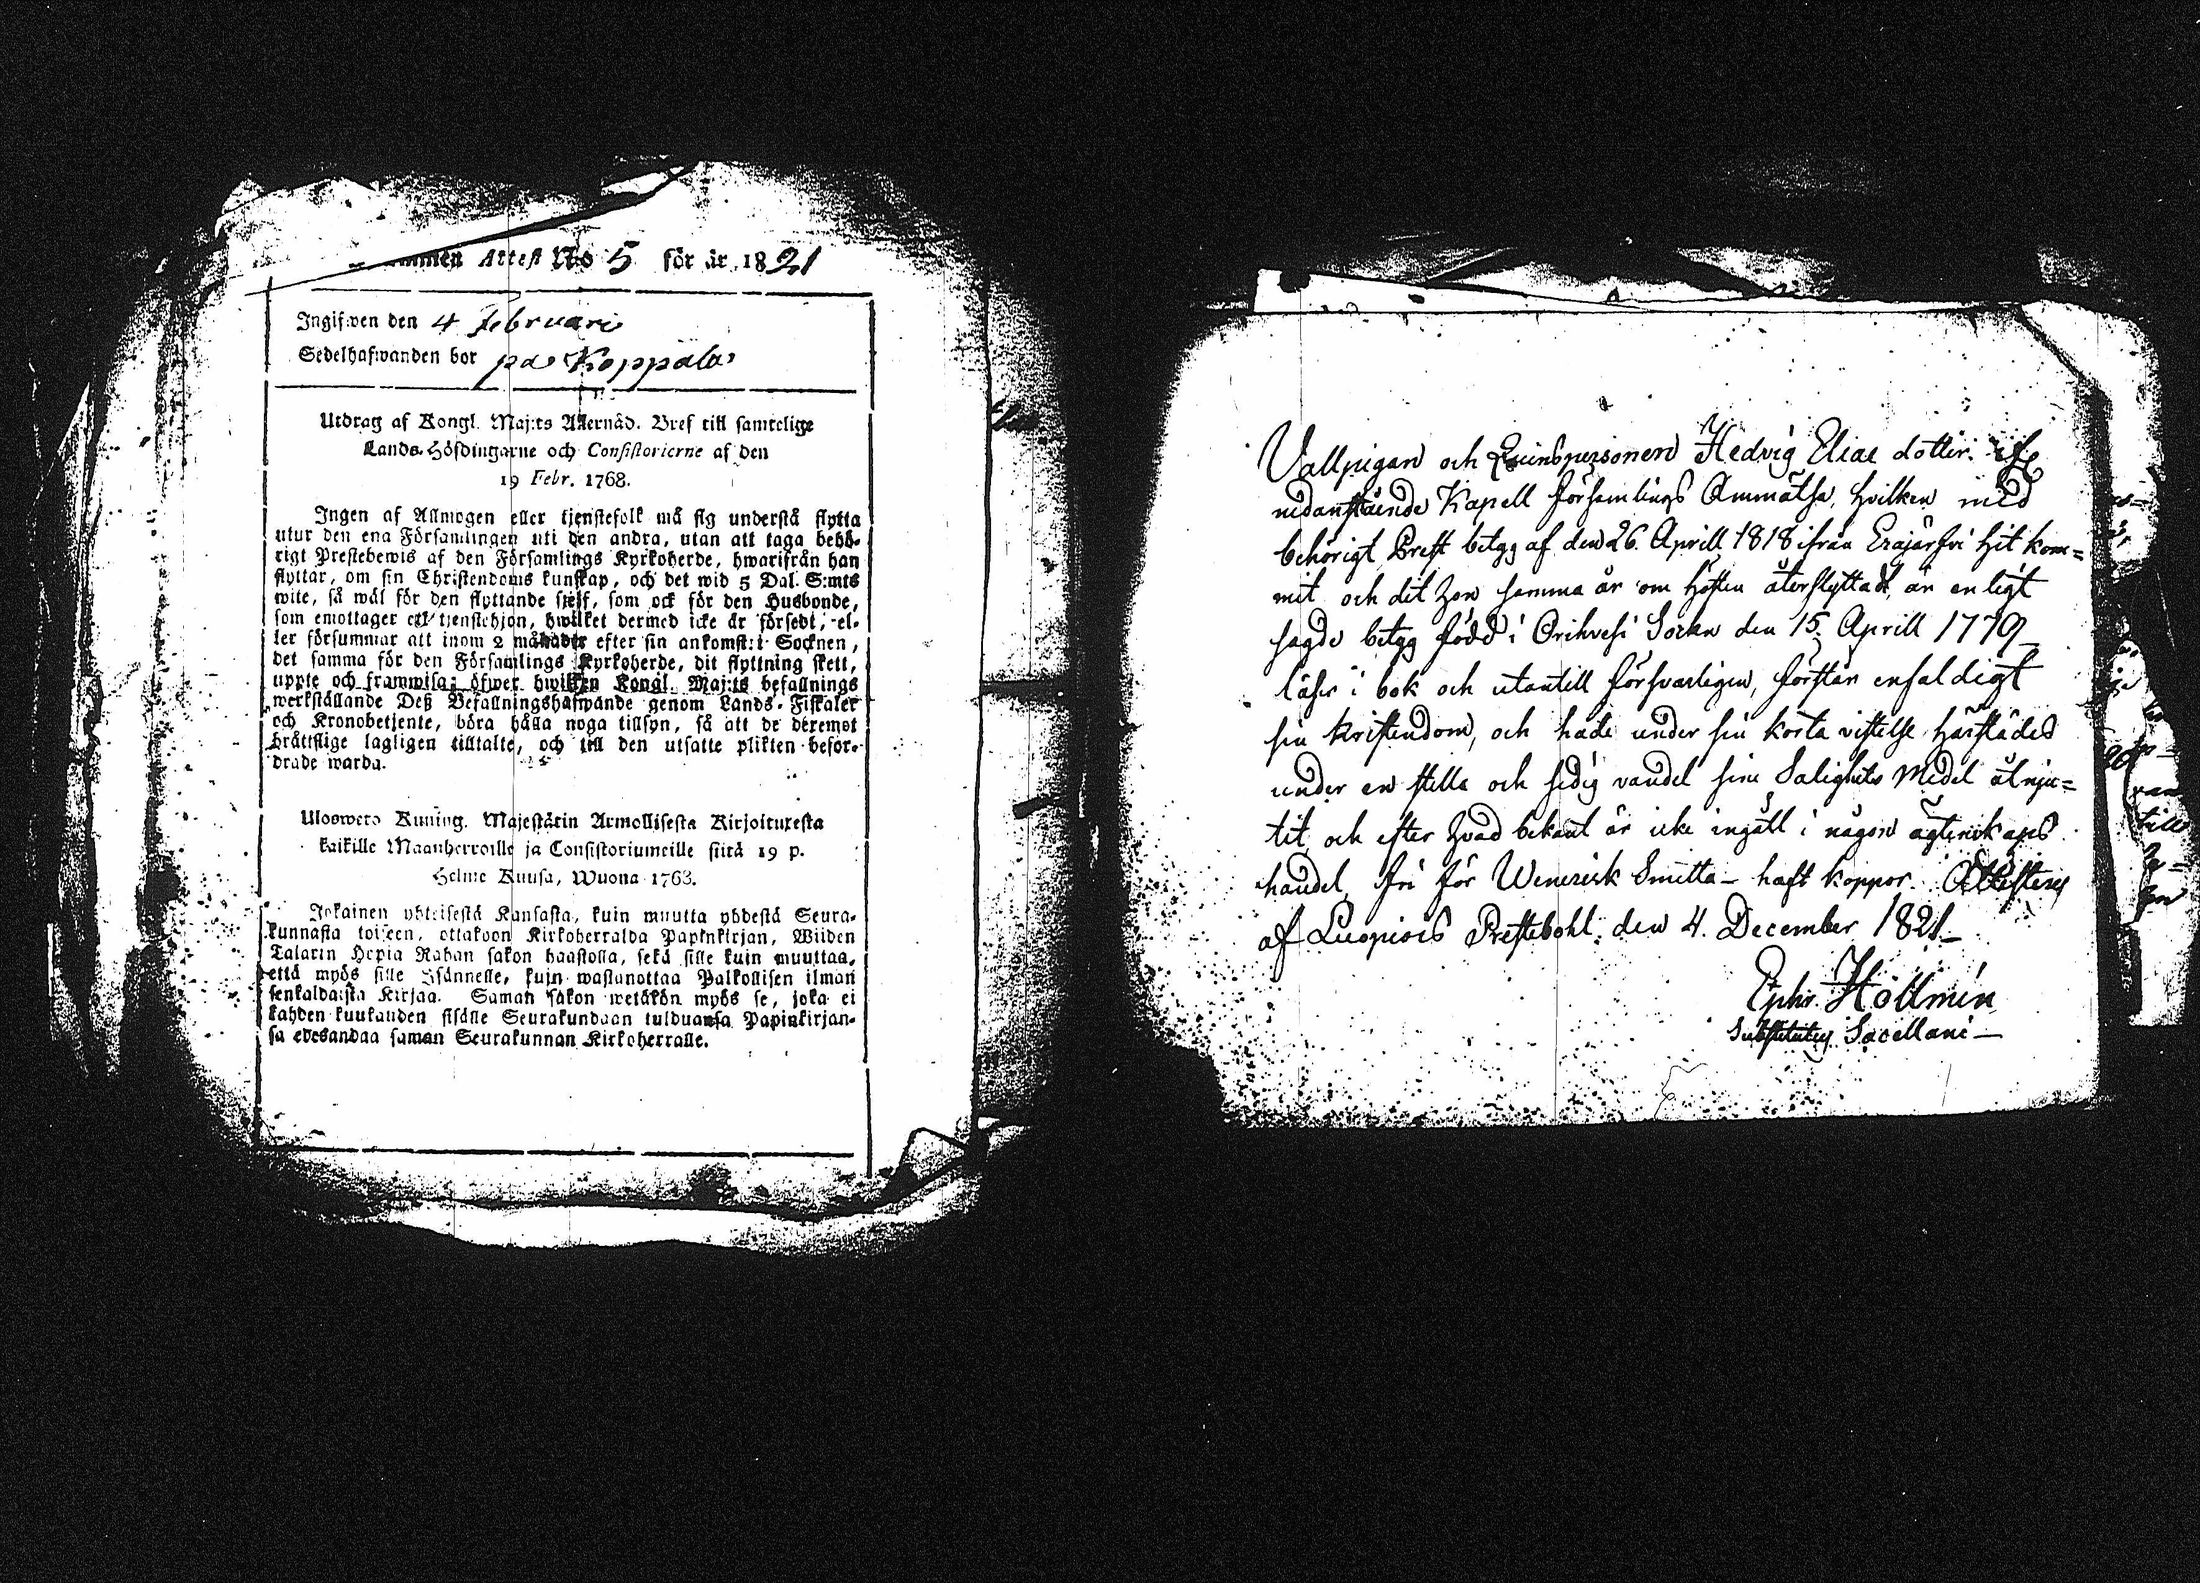 ammen Attest No 5 för år 1821
Ingifwen den 4 februari
Sedelhafwanden bor på Koppala
Utdrag af Kongl. Maj:ts Allernåd. Bref till samtelige
Lands-Höfdingarne och Consistorierne af den
19 Febr. 1768.
Ingen af Allmogen eller tjenstefolk må sig understå flytta
utur den ena Församlingen uti den andra, utan att taga behö-
rigt Prestebewis af den Församlings Kyrkoherde, hwarifrån han
flyttar, om sin Christendoms kunskap, och det wid 5 Dal. S:mts
wite, så wäl för den flyttande sjelf, som ock för den Husbonde,
som emottager ett tjenstehjon, hwilket dermed icke är försedt, el-
ler försummar att inom 2 månader efter sin ankomst i Socknen,
det samma för den Församlings Kyrkoherde, dit flyttning skett,
uppte och framwisa; öfwer hwilken Kongl. Maj:ts befallnings
werkställande Deß Befallningshafwande genom Lands-Fiskaler
och Kronobetjente, böra hålla noga tillsyn, så att de deremot
bråttslige lagligen tilltalte, och till den utsatte plikten beför-
drade warda.
Uloswero Kuning. Majestätin Armollisesta Kirjoituxesta
kaikille Maanherroille ja Consistoriumeille siitä 19 p.
Helme Kuusa, Wuona 1768.
Jokainen yhteisestä Kansasta, kuin muutta yhdestä Seura-
kunnasta toiseen, ottakoon Kirkoherralda Papinkirjan, Wiiden
Talarin Hopia Rahan sakon haastolla, sekä sille kuin muuttaa,
että myös sille Isännelle, kuin wastanottaa Palkollisen ilman
senkaldaista Kirjaa. Saman sakon wetäkön myös se, joka ei
kahden kuukauden sisälle Seurakundaan tulduansa Papinkirjan-
sa edesandaa saman Seurakunnan Kirkoherralle.
Vallpigan och Qvinspersonen Hedvig Elias dotter
nedanstående Kapell församlings Ammätsa, hvilken med
behörigt Prest betyg af den 26. Aprill 1818 ifrån Eräjärfvi hit kom=
mit och dit hon samma år om hösten återflyttat, är enligt
sagde betyg född i Orihvesi Sockn den 15. Aprill 1779
läser i bok och utantill försvarligen, förstår enfaldigt
sin kristendom, och hade under sin korta vistelse härstädes
under en stilla och sedig vandel sine Salighets Medel åtnju=
tit, och efter hvad bekant är icke ingått i någon ägtenskaps
handel, fri för Wenerisk Smitta – haft koppor. Attesteras
af Luopiois Prestebohl, den 4. December 1821
Ephr. Hollmén
Substitutus Sacellani –